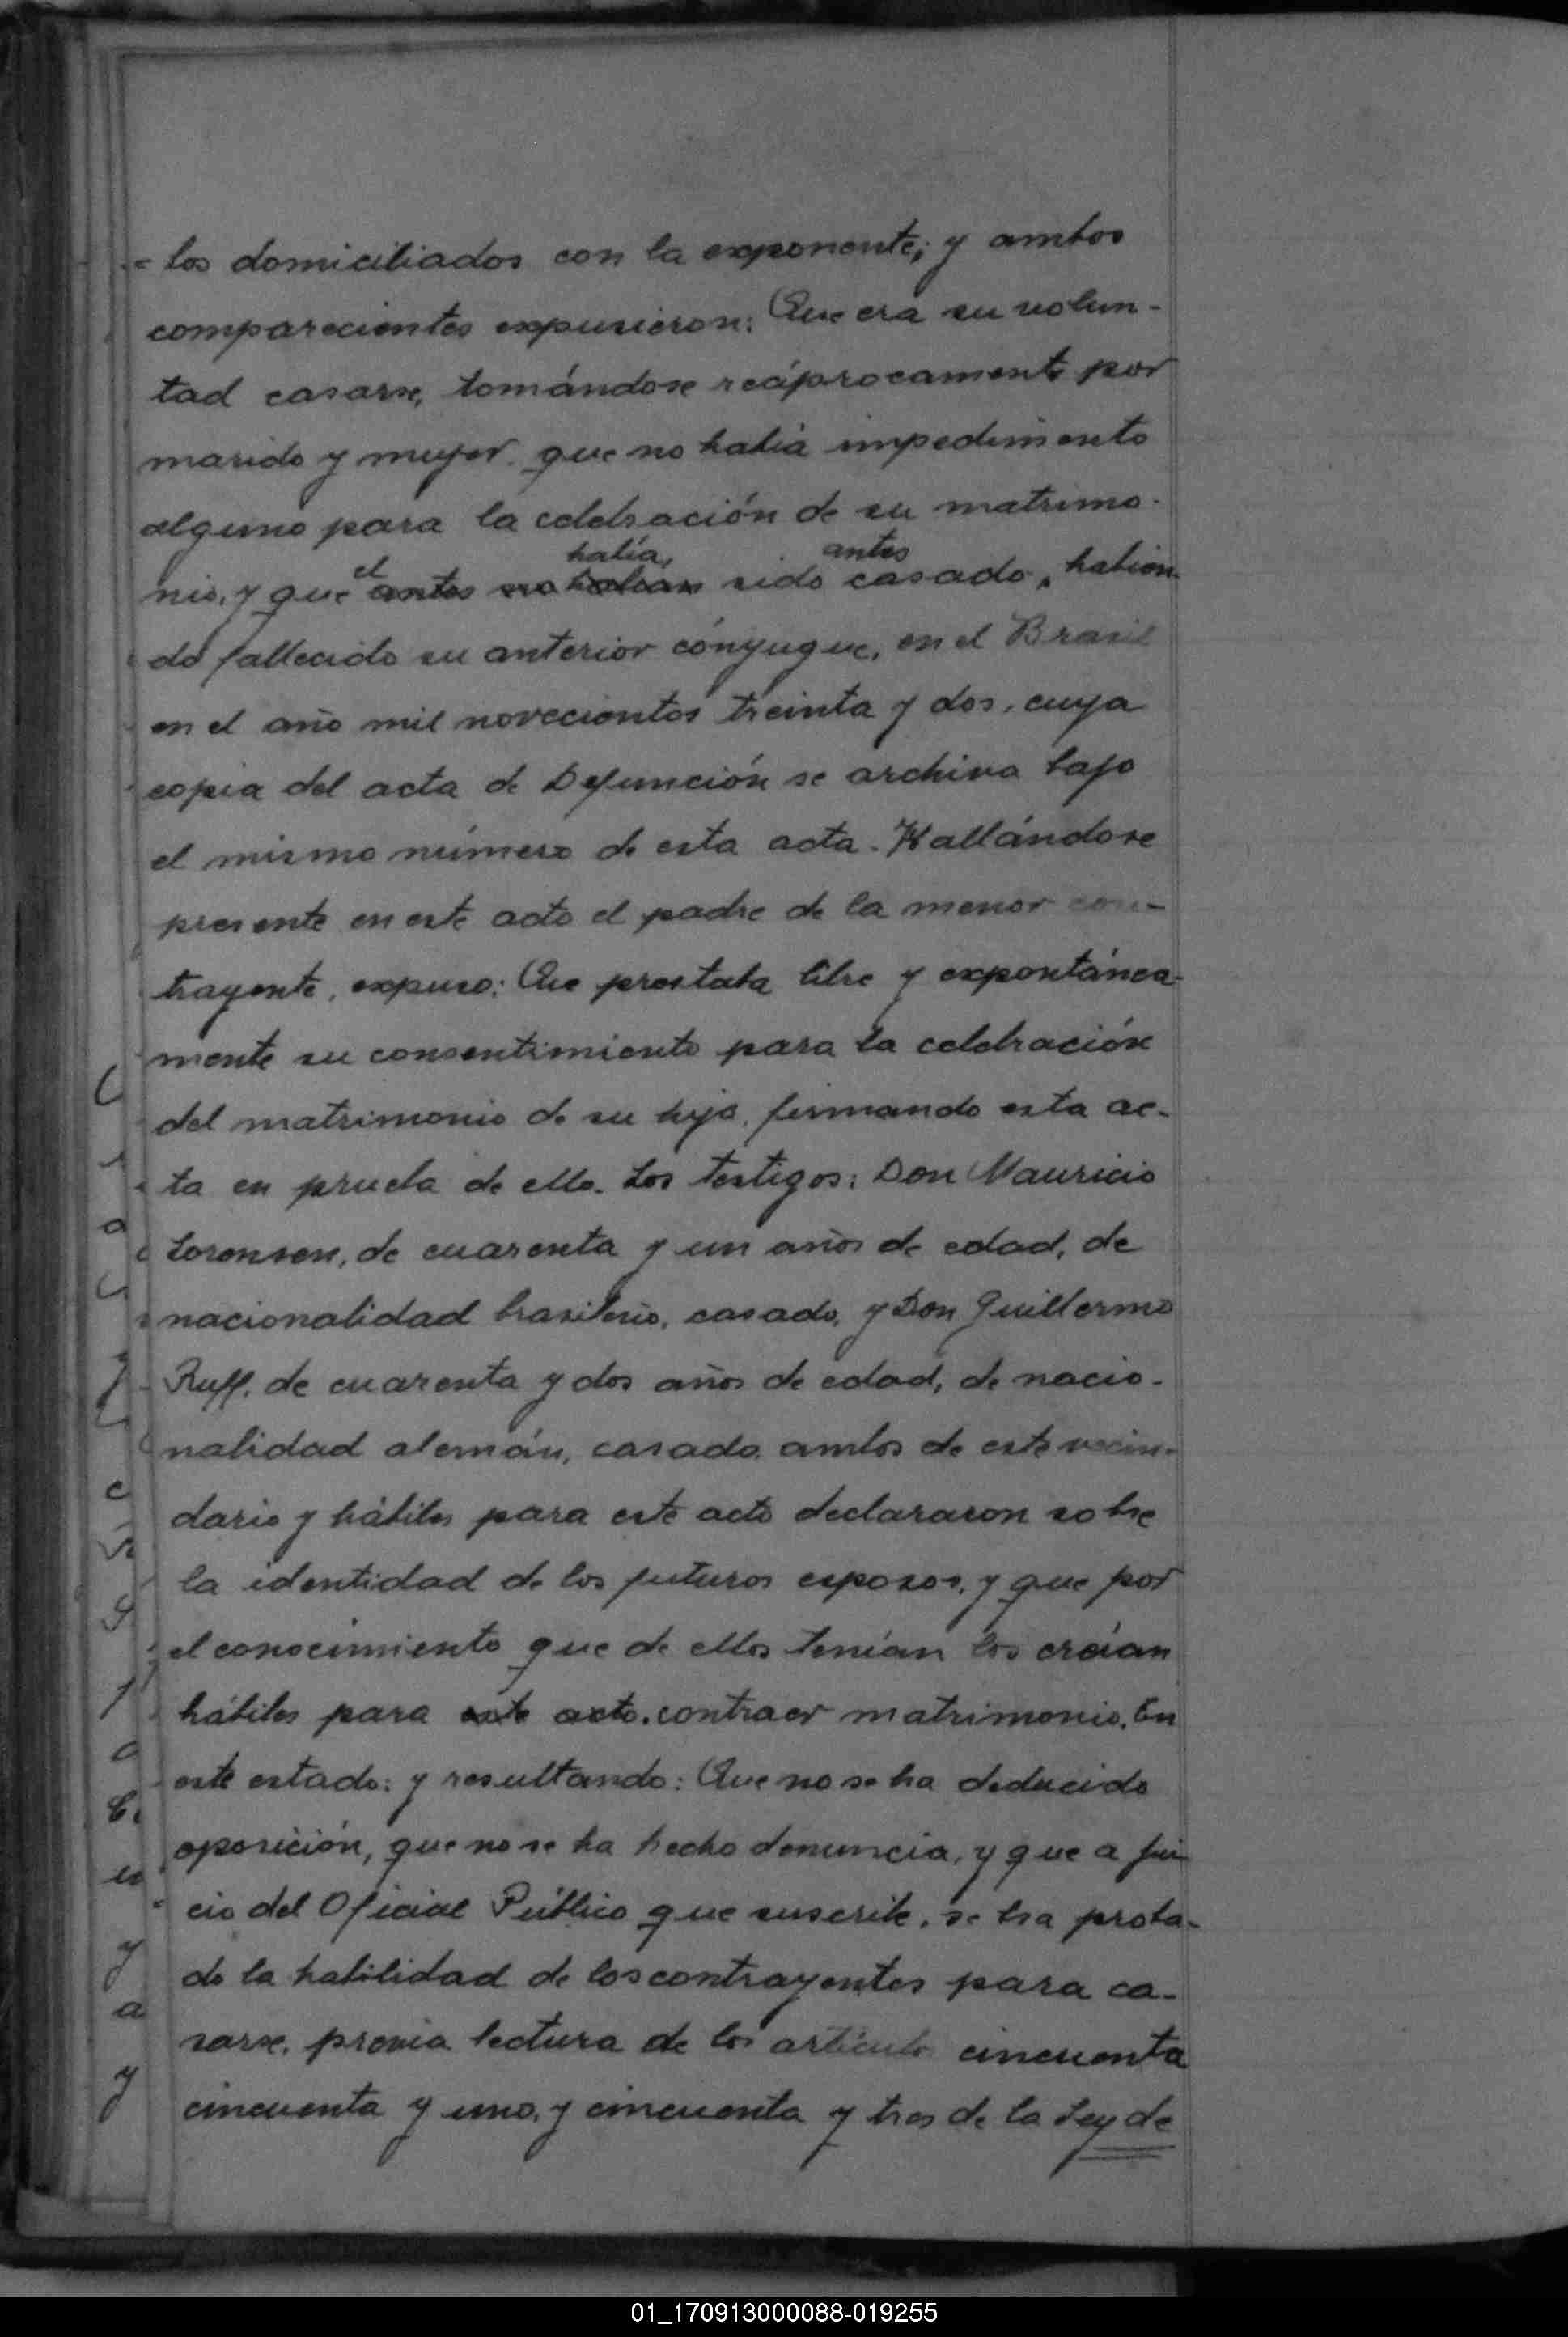 - los domiciliados con la exponente; y ambos
comparecientes expusieron: Que era su volun-
tad casarse, tomándose recíprocamente por
marido y mujer. que no había impedimento
alguno para la celebración de su matrimo-
el había, antes
nio, y que antes no habian sido casado, habien-
do fallecido su anterior cónyugue, en el Brasil
en el año mil novecientos treinta y dos, cuya
copia del acta de Defunción se archiva bajo
el mismo número de esta acta. Hallándose
presente en este acto el padre de la menor con-
trayente, expuso: Que prestaba libre y expontánea-
mente su consentimiento para la celebración
del matrimonio de su hija, firmando esta ac-
ta en prueba de ello. Los testigos: Don Mauricio
Lorensen, de cuarenta y un años de edad, de
nacionalidad brasileño, casado, y Don Guillermo
Ruff, de cuarenta y dos años de edad, de nacio-
nalidad alemán, casado, ambos de este vecin-
dario y hábiles para este acto declararon sobre
la identidad de los futuros esposos, y que por
el conocimiento que de ellos tenían los creían
hábiles para este acto. contraer matrimonio. En
este estado: y resultando: Que no se ha deducido
oposición, que no se ha hecho denuncia, y que a jui
cio del Oficial Público que suscribe, se ha proba-
do la habilidad de los contrayentes para ca-
sarse, previa lectura de los artículos cincuenta
cincuenta y uno, y cincuenta y tres de la Ley de
01_170913000088-019255